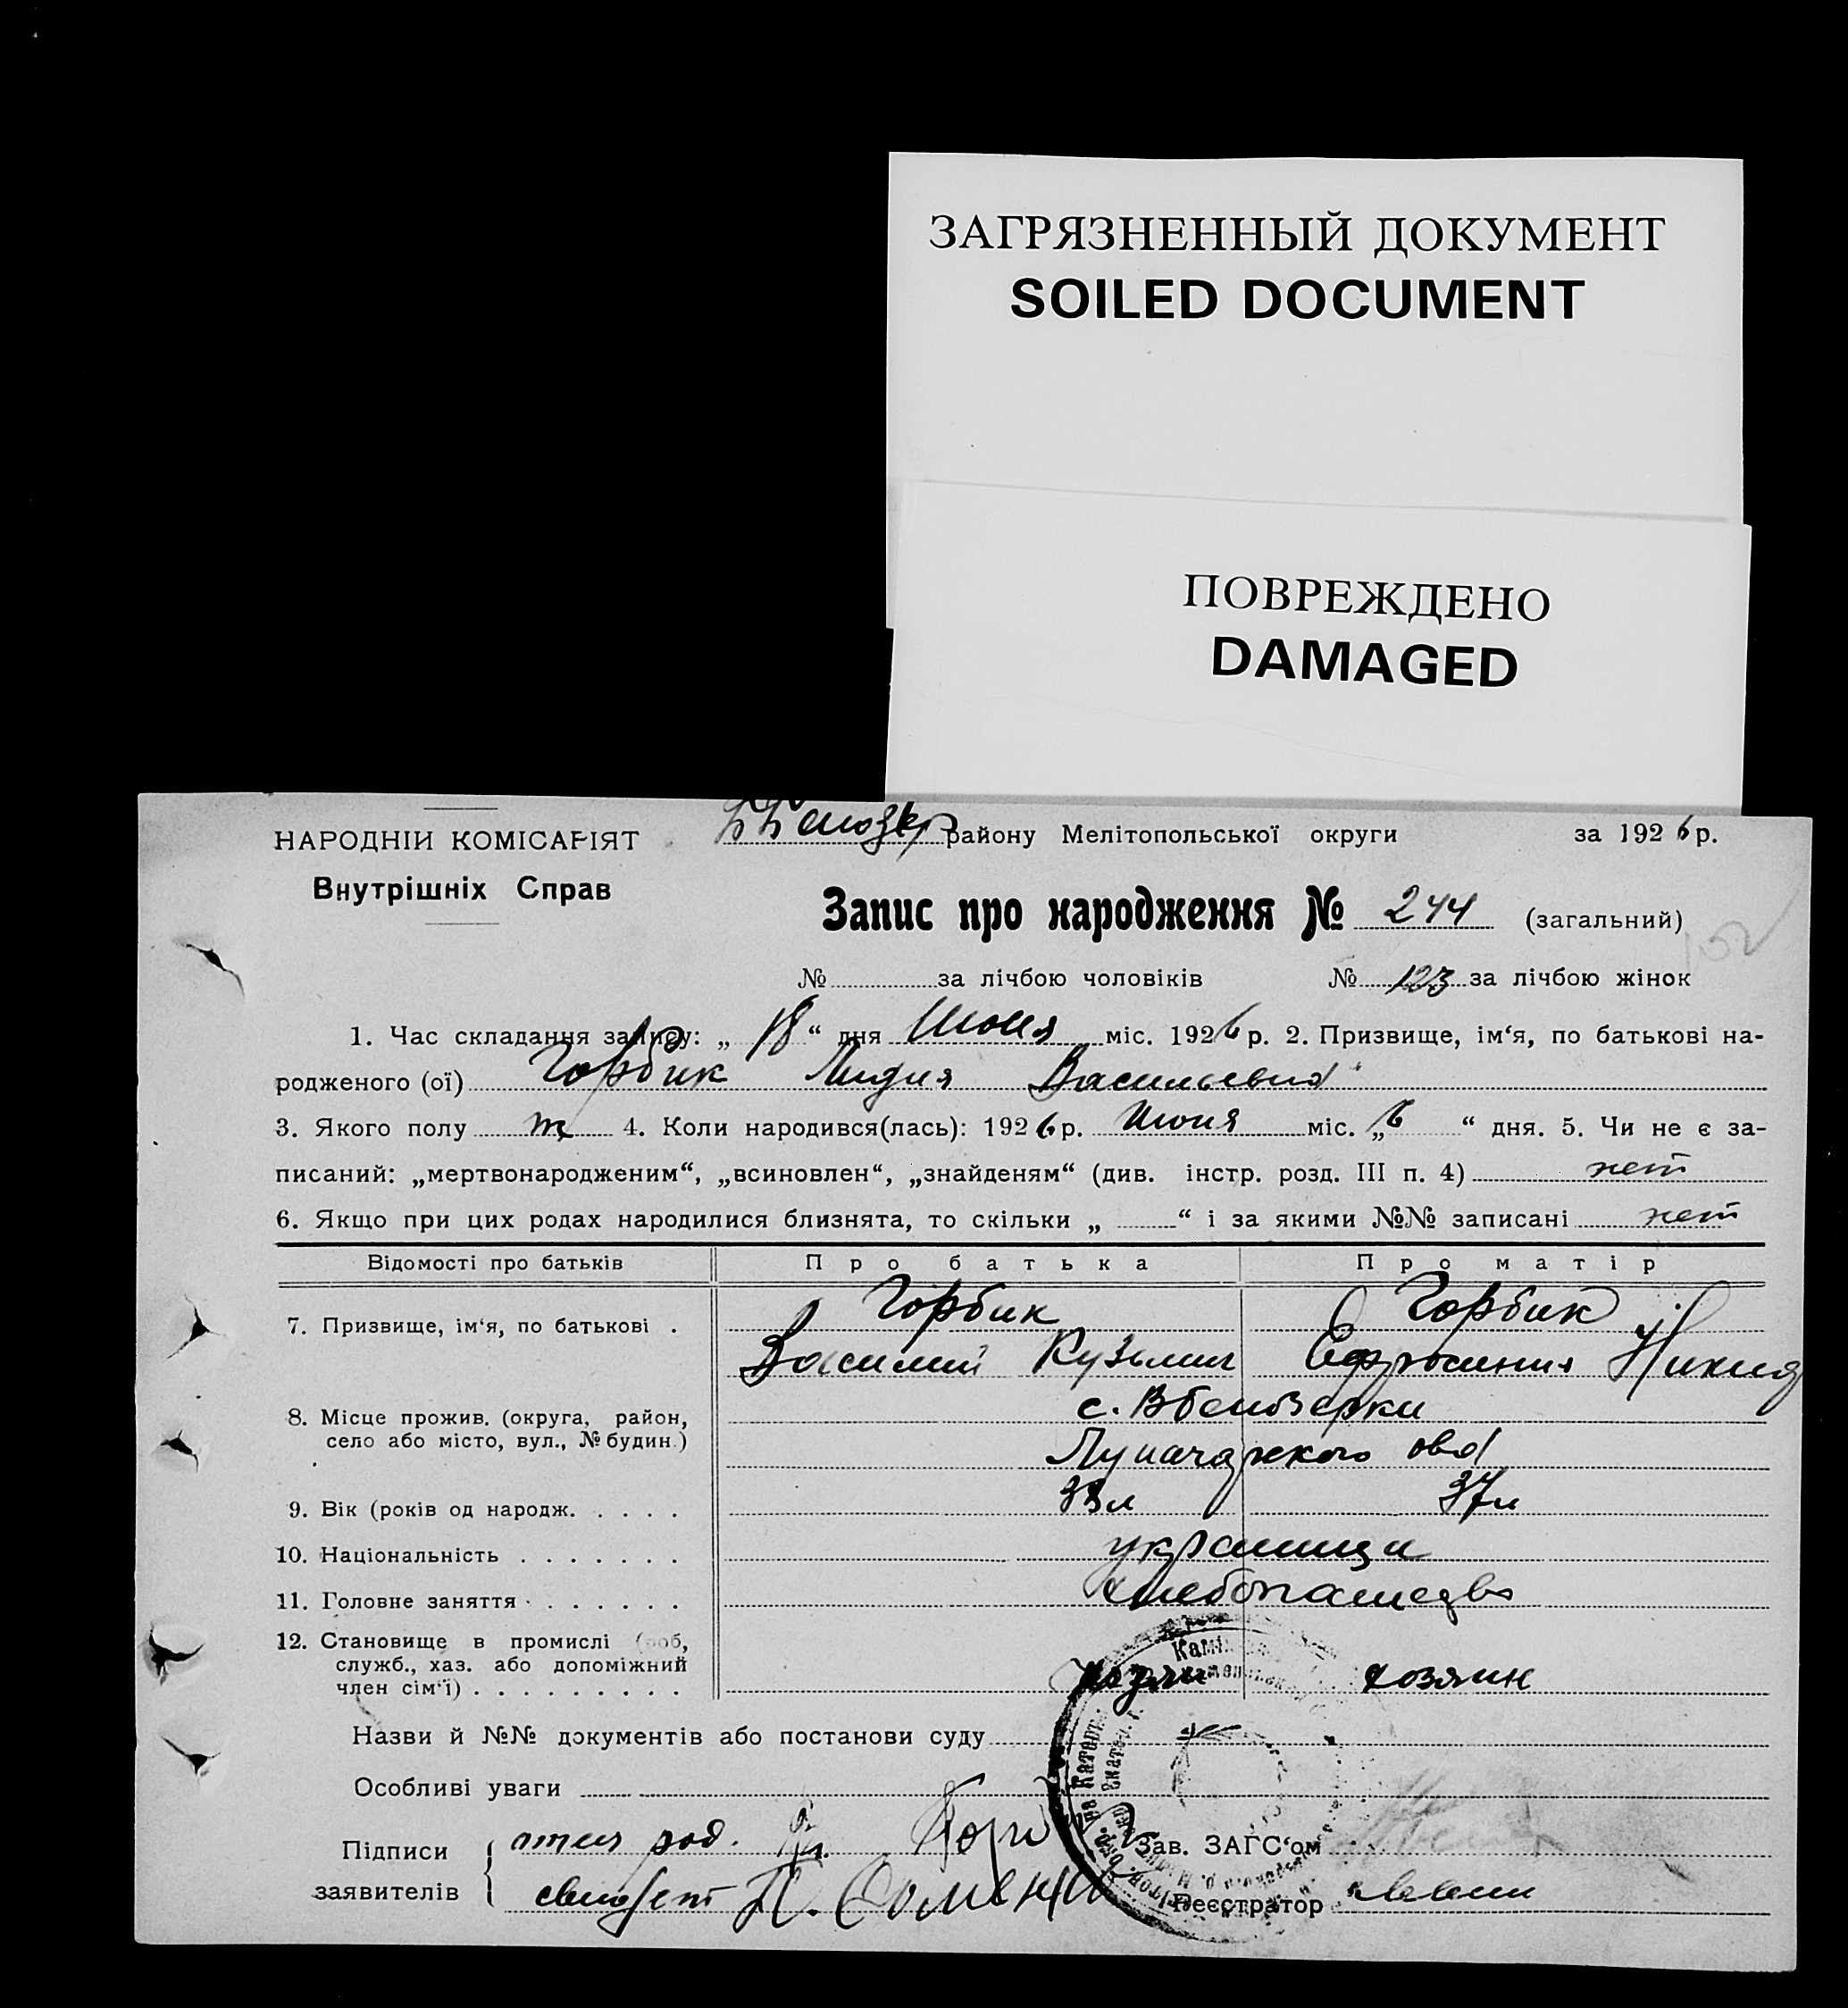 ЗАГРЯЗНЕННЫЙ ДОКУМЕНТ
SOILED DOCUMENT
ПОВРЕЖДЕНО
DAMAGED
НАРОДНІЙ КОМІСАРІЯТ
Внутрішніх Справ
району Мелітопольської округи за 1926 р.
Запис про народження № 244 (загальний)
№ за лічбою чоловіків № 123 за лічбою жінок
1. Час складання запису: „ 18 “ дня Июня міс. 1926 р. 2. Призвище, ім'я, по батькові на-
родженого (ої) Горбик Лидия Васильевна
3. Якого полу ж 4. Коли народився(лась): 1926 р. Июня міс. „6 “ дня. 5. Чи не є за-
писаний: „мертвонародженим“, „всиновлен“, „знайденям“ (див. інстр. розд. III п. 4) нет
6. Якщо при цих родах народилися близнята, то скільки „ “ і за якими №№ записані нет
Відомості про батьків Про батька Про матір
7. Призвище, ім'я, по батькові . Горбик Горбик
Василий Кузьмич Ефросиния Никид
8. Місце прожив. (округа, район,
село або місто, вул., № будин.)
с. Вбелозерки
Луначарского
9. Вік (років од народж. . . . . 33л 37л
10. Національність . . . . . . . украинци
11. Головне заняття . . . . . . . хлебопашество
12. Становище в промислі (роб,
служб., хаз. або допоміжний
член сім'ї) . . . . . . . . . хозяин
Назви й №№ документів або постанови суду
Особливі уваги
Підписи
заявителів
отец род.
свидет
Зав. ЗАГС'ом
Реєстратор